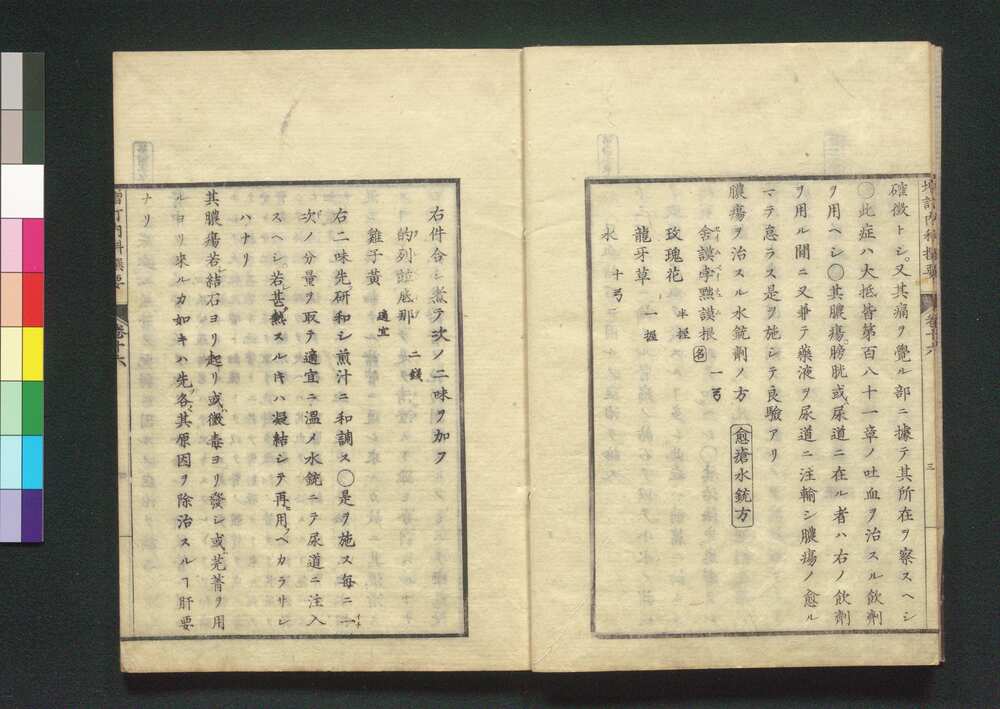 確徴トシ。又其痛ヲ覺ル部ニ據テ其所在ヲ察スヘシ
○此症ハ大抵皆第百八十一章ノ吐血ヲ治スル飲劑
ヲ用ヘシ○其膿瘍膀胱或ハ尿道ニ在ル者ハ右ノ飲劑
ヲ用ル間ニ又兼テ藥液ヲ尿道ニ注輸シ膿瘍ノ愈ル
マテ怠ラス是ヲ施シテ良驗アリ
膿瘍ヲ治スル水銃劑ノ方 愈瘡水銃方
舍謨孛㸃謨根 名 一弓
玫瑰花 半握
龍牙草 一握
水 十弓
右件合シ煮テ次ノ二味ヲ加フ
的列並底那 二錢
雞子黃 適宜
右二味先研和シ煎汁ニ和調ス○是ヲ施ス每ニ一
次ノ分量ヲ取テ適宜ニ溫メ水銃ニテ尿道ニ注入
スヘシ若甚熱スルキハ凝結シテ再用ベカラサレ
ハナリ
其膿瘍若結石ヨリ起リ或ハ黴毒ヨリ發シ或芫菁ヲ用
ルヨリ來ルカ如キハ先各其原因ヲ除治スルヿ肝要
ナリ
增訂內科撰要
卷十六
三